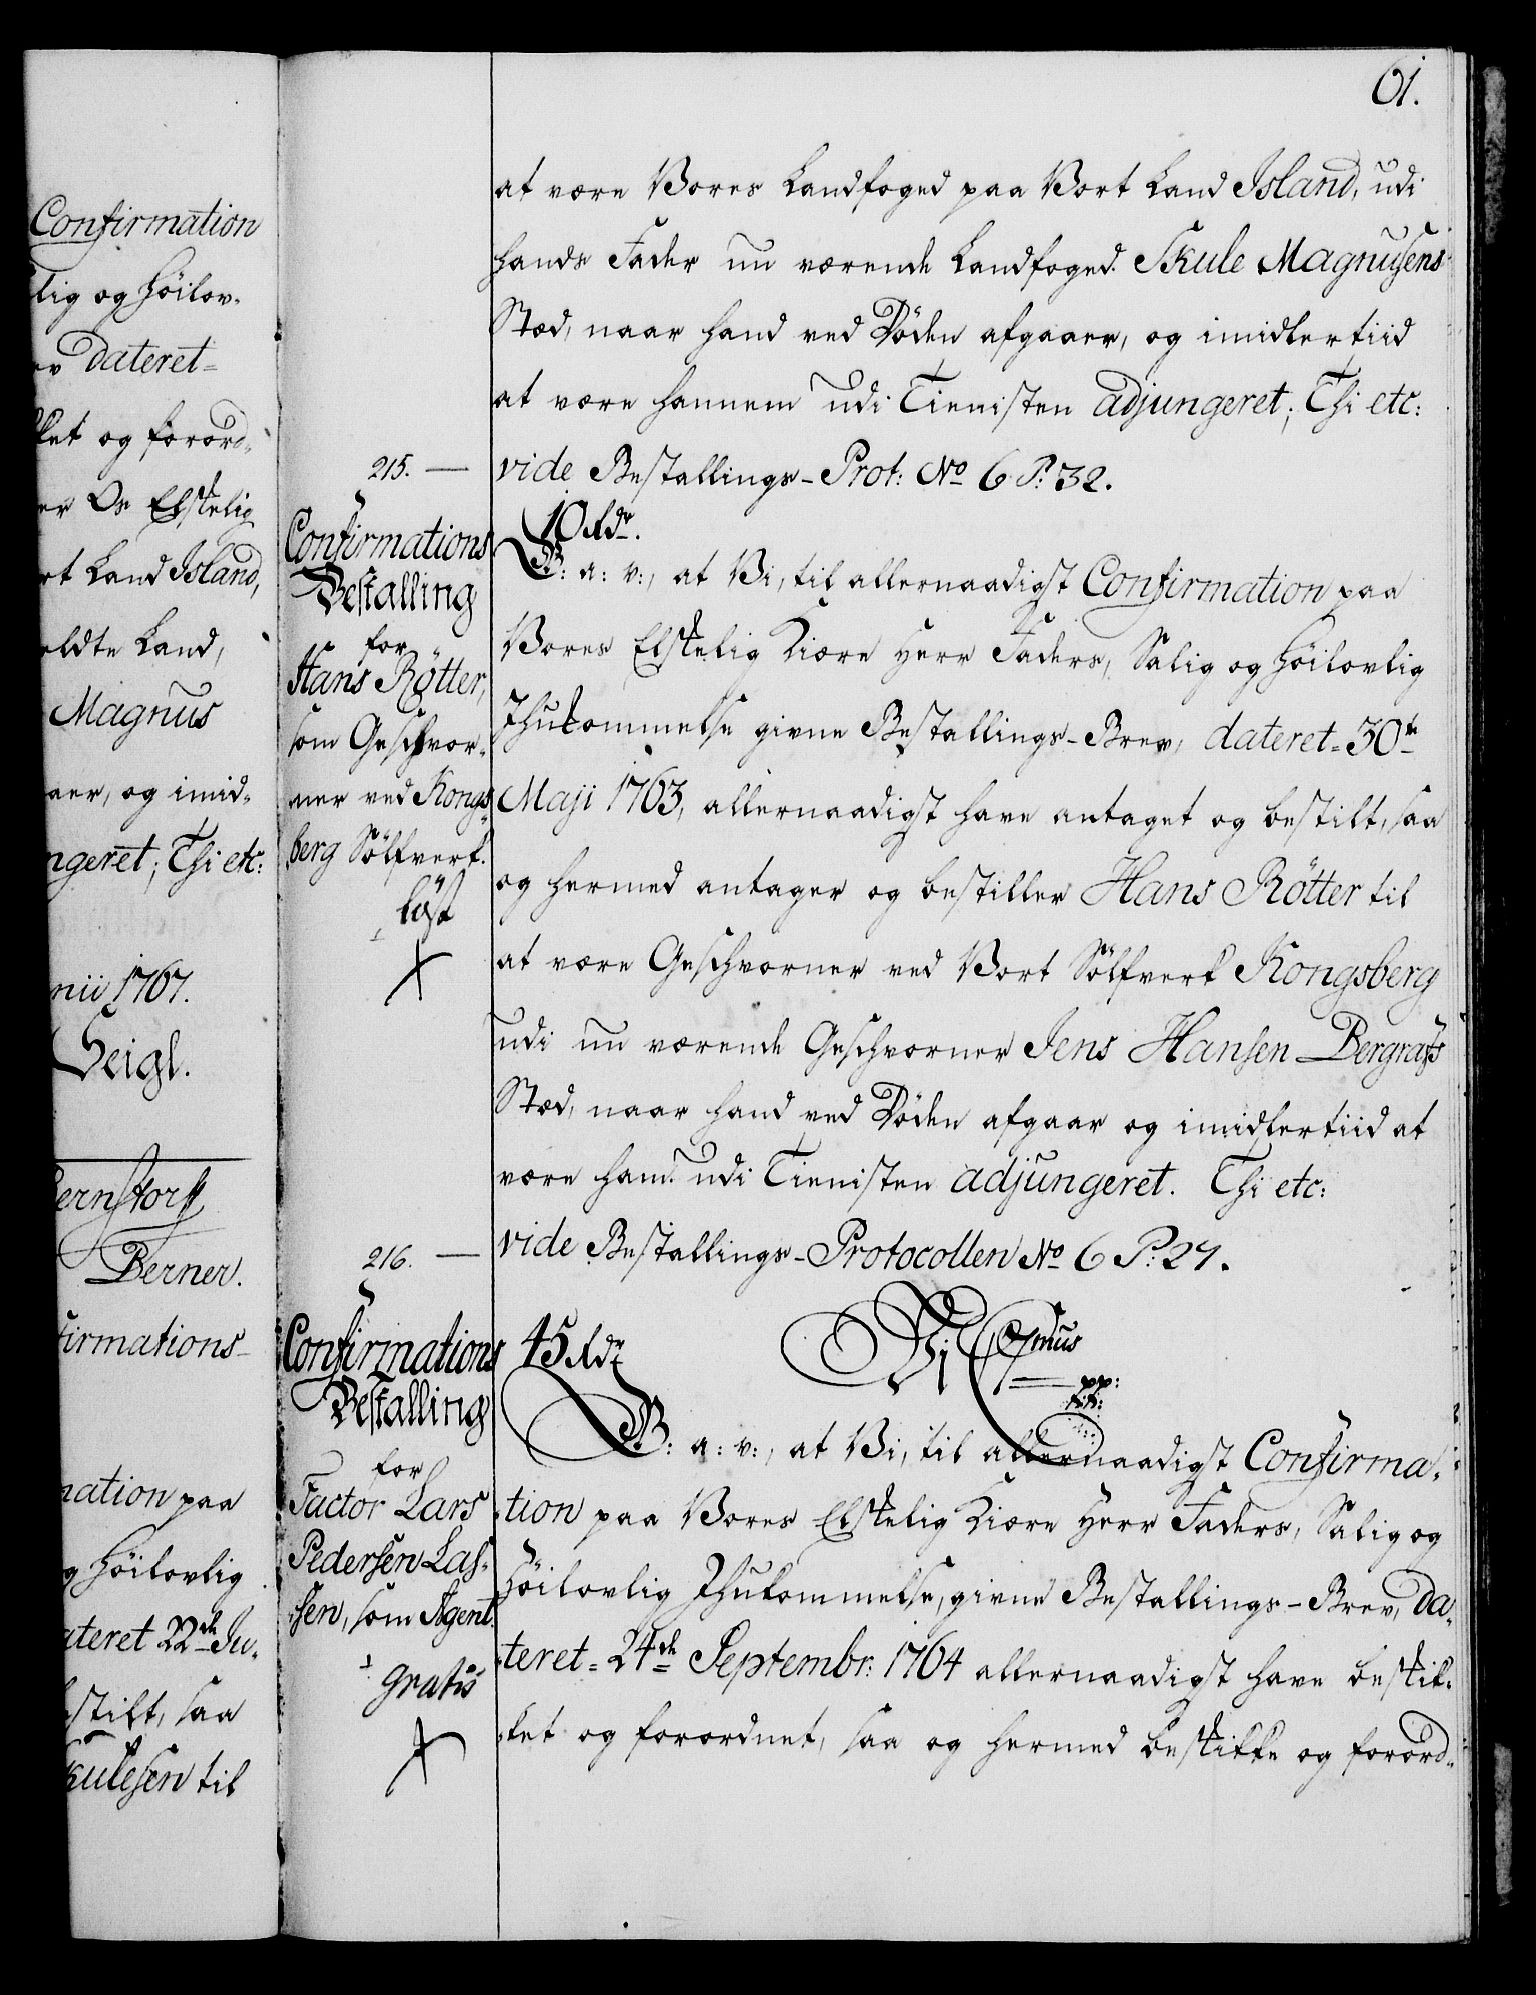 Confirmation
lig og Höilov-
dateret=
ket og forord-
er Os Elskelig
rt Land Island,
eldte Land,
Magnus
aer, og imid-
ngeret; Thi etc:
nii 1767.
Seigl.
Bernstorff
Berner.
firmations-
mation paa
g Höilovlig
ateret 22de Ju-
estilt, saa
Skulesen til
61.
at være Vores Landfoged paa Vort Land Island, udi
hands Fader nu værende Landfoged Skule Magnusens
Stæd, naar hand ved Döden afgaaer, og imidlertiid
at være hannem udi Tienisten adjungeret; Thi etc:
vide Bestallings-Prot: No 6 P: 32.
215. —
Confirmations
Bestalling
for
Hans Rötter,
som Geschvor-
ner ved Kongs-
berg Sölfverk.
löst
10 Rdr.
G: a: v:, at Vi, til allernaadigst Confirmation paa
Vores Elskelig Kiære Herr Faders, Salig og Höilovlig
Ihukommelse givne Bestallings-Brev, dateret=30te
Maji 1763, allernaadigst have antaget og bestilt, saa
og hermed antager og bestiller Hans Rötter til
at være Geschvorner ved Vort Sölfverk Kongsberg
udi nu værende Geschvorner Jens Hansen Bergrafs
Stæd, naar hand ved Döden afgaar og imidlertiid at
være ham udi Tienisten adjungeret. Thi etc:
vide Bestallings-Protocollen No 6 P: 27.
216. —
Confirmations
Bestalling
for
Factor Lars
Pedersen Las-
sen, som Agent.
gratis
45 Rdr
Vi C 7mus
pp:
G: a: v:, at Vi, til allernaadigst Confirma-
tion paa Vores Elskelig Kiære Herr Faders, Salig og
Höilovlig Ihukommelse, givne Bestallings-Brev, da-
teret=24de Septembr: 1764 allernaadigst have beskik-
ket og forordnet, saa og hermed beskikke og forord-